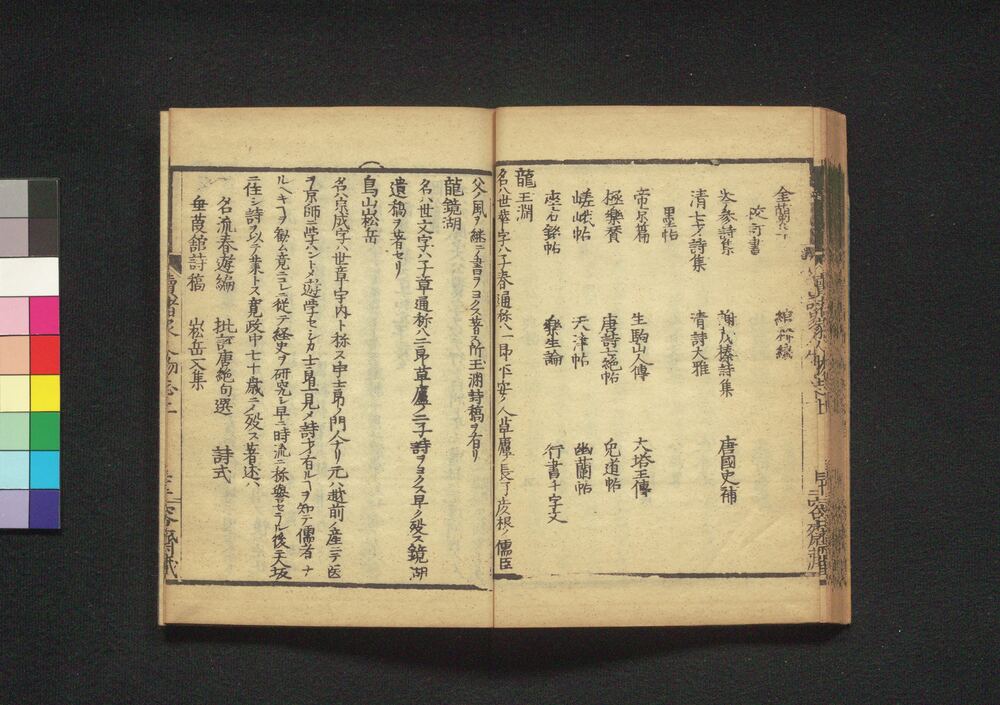 金蘭
綜
改訂書
岑參詩集
謝茂榛詩集
唐國史補
清七才詩集
清詩大雅
墨帖
帝京篇
生駒山人傳
大塔王傳
極樂賛
唐詩絶帖
兎道帖
嵯峨帖
天津帖
幽蘭帖
座右銘帖
樂生論
行書千字文
龍玉淵
名ハ世華字ハ子春通称ハ一郎平安ノ人草廬ノ長子彦根ノ儒臣
父ノ風ヲ継テ書ヲヨクス著ス所玉淵詩稿ヲ有リ
龍鏡湖
名ハ世文字ハ子章通称ハ二郎草廬ノ二子詩ヲヨクス早ク殁ス鏡湖
遺稿ヲ著セリ
鳥山崧岳
名ハ宗成字ハ世章宇内ト称ス申士昻ノ門人ナリ元ハ越前ノ産ニテ医
ヲ京師ニ学ハントメ遊学セシカ士昻一見メ詩才有ルヿヲ知テ儒者ナ
ルヘキヿヲ勧ム竟ニコレニ従テ経史ヲ研究シ早ニ時流ニ称譽セラル後大坂
ニ住シ詩ヲ以テ業トス寛政中七十歳ニテ殁ス著述ハ
名流春遊編
批評唐絶句選
詩式
垂葭舘詩稿
崧岳人集